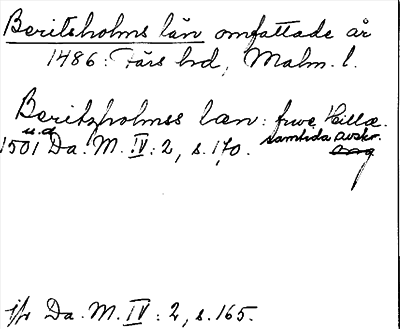 Beritsholms län omfattade år
1486: Färs hd, Malm. l.
Beritzholmss læn: frwe Hillæ.
u.d.
samtida avskr.
1501 Da. M. IV: 2, s. 170.
jfr Da. M. IV: 2, s. 165.